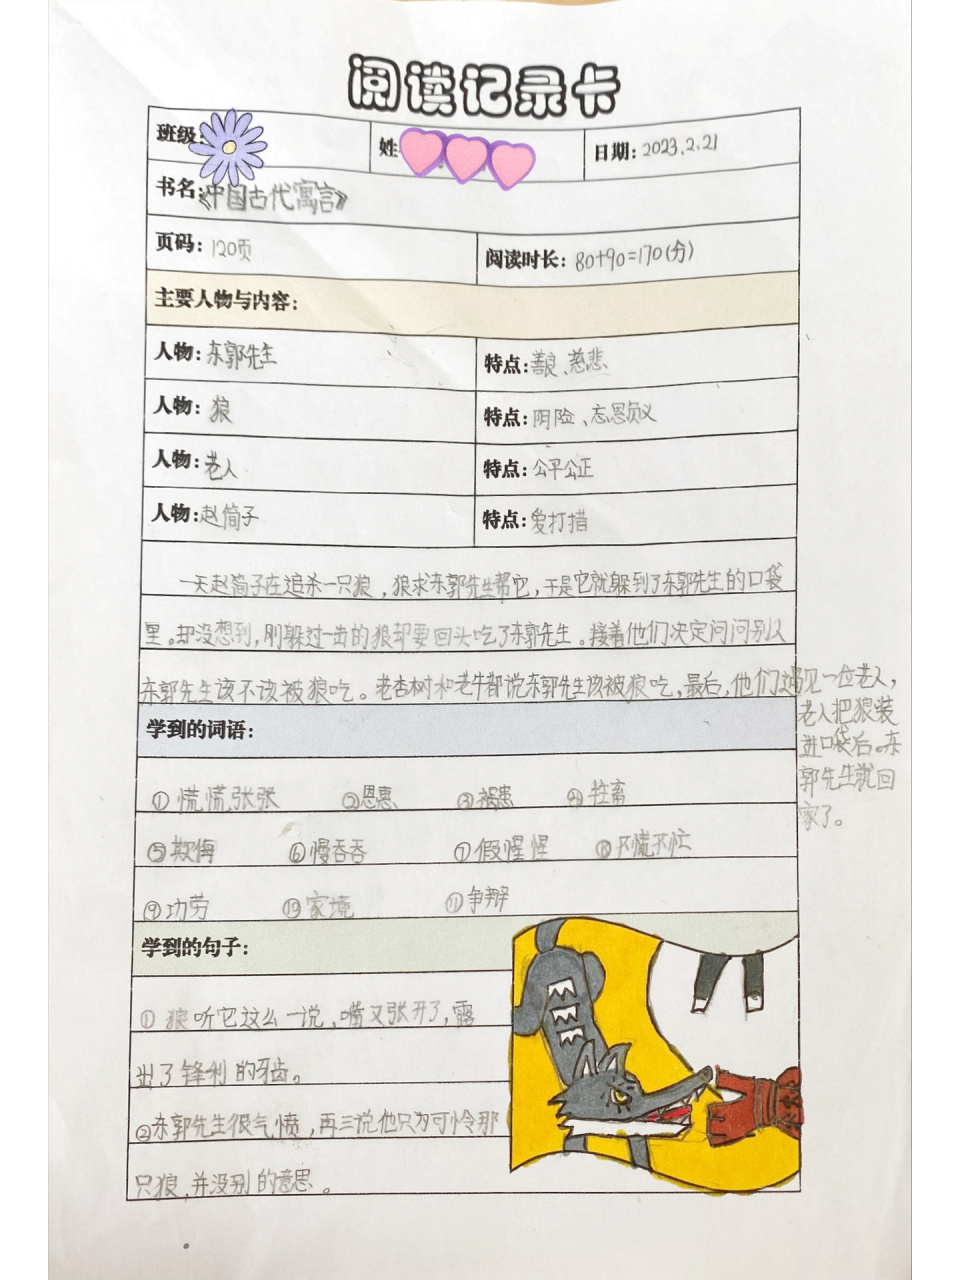 阅读记录卡
班级:
姓
日期: 2023.2.21
书名:《中国古代寓言》
页码: 120页
阅读时长: 80+90=170(分)
主要人物与内容:
人物: 东郭先生
特点: 善良、慈悲
人物: 狼
特点: 阴险、忘恩负义
人物: 老人
特点: 公平公正
人物: 赵简子
特点: 爱打猎
一天赵简子在追杀一只狼,狼求东郭先生帮它,于是它就躲到了东郭先生的口袋
里。却没想到,刚躲过一击的狼却要回头吃了东郭先生。接着他们决定问问别以
东郭先生该不该被狼吃。老杏树和老牛都说东郭先生该被狼吃,最后,他们遇见一位老人,
老人把狼装
进口袋后。东
郭先生就回
家了。
学到的词语:
① 慌慌张张 ②恩惠 ③祸患 ④ 牲畜
⑤欺侮 ⑥慢吞吞 ⑦假惺惺 ⑧不慌不忙
⑨功劳 ⑩家境 ⑪争辩
学到的句子:
① 狼听它这么一说,嘴又张开了,露
出了锋利的牙齿。
②东郭先生很气愤,再三说他只为可怜那
只狼,并没别的意思。